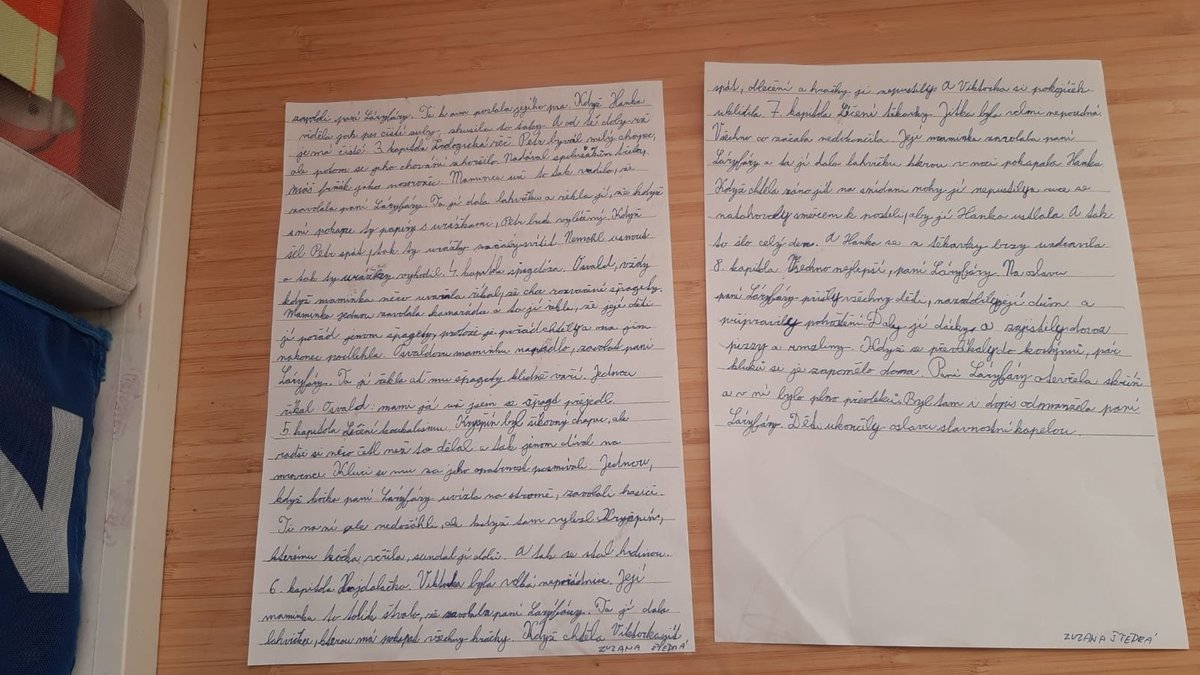 zavolali paní Láryfáry. Ta k nim poslala jejího psa. Když Hanka
viděla jak pes čistí zuby, zkusila to taky. A od té doby už
je má čisté. 3. kapitola Zoologická řeč. Petr býval milý chlapec,
ale potom se jeho chování zhoršilo. Nadával spolužákům třeba,
máš frňák jako nosorožec. Maminku už to tak vadilo, že
zavolala paní Láryfáry. Ta jí dala lahvičku a řekla jí, že když
sní pokape ty papíry s urážkami, Petr bude vyléčený. Když
šel Petr spát, tak ty urážky začaly svítit. Nemohl usnout
a tak ty urážky vyhodil. 4. kapitola špagetóza. Osvald, vždy
když maminka něco uvařila říkal, že chce rozvařené špagety.
Maminka jednou zavolala kamarádce a ta jí řekla, že její děti
jí pořád jenom špagety, protože je pořád chtěly a ona jim
nakonec podlehla. Osvaldovu maminku napadlo, zavolat paní
Láryfáry. Ta jí řekla ať mu špagety klidně vaří. Jednou
říkal Osvald: mami já už jsem se špaget přejedl.
5. kapitola Léčení koukalismu. Kryšpín byl šikovný chlapec, ale
radši si něco četl než to dělal a tak jenom díval na
mravence. Kluci se mu za jeho opatrnost posmívali. Jednou,
když kočka paní Láryfáry uvízla na stromě, zavolali hasiče.
Ti na ní ale nedosáhli, ale když tam vylezl Kryšpín,
kterému kočka věřila, sundal jí dolů. A tak se stal hrdinou.
6. kapitola Hajdalačka. Viktorka byla velká nepořádnice. Její
maminku to tolik štvalo, že zavolala paní Láryfáry. Ta jí dala
lahvičku, kterou má pokapat všechny hračky. Když chtěla Viktorka jít
ZUZANA ŠTĚDRÁ
spát, oblečení a hračky jí nepustily. A Viktorka si pokojíček
uklidila. 7. kapitola Léčení těkavky. Jitka byla velmi neposedná.
Všechno co začala nedokončila. Její maminka zavolala paní
Láryfáry a ta jí dala lahvičku kterou v noci pokapala Hanku.
Když chtěla ráno jít na snídani nohy jí nepustily a ruce se
natahovaly směrem k posteli, aby jí Hanka ustlala. A tak
to šlo celý den. A Hanka se z těkavky brzy uzdravila.
8. kapitola Všechno nejlepší, paní Láryfáry. Na oslavu
paní Láryfáry přišly všechny děti, nazdobily její dům a
připravily pohoštění. Daly jí dárky a zajistily dovoz
pizzy a zmrzliny. Když se převlékaly do kostýmů, pár
kluků si je zapomělo doma. Paní Láryfáry otevřela skříň
a v ní bylo plno převleků. Byl tam i dopis od manžela paní
Láryfáry. Děti ukončily oslavu slavnostní kapelou.
ZUZANA ŠTĚDRÁ